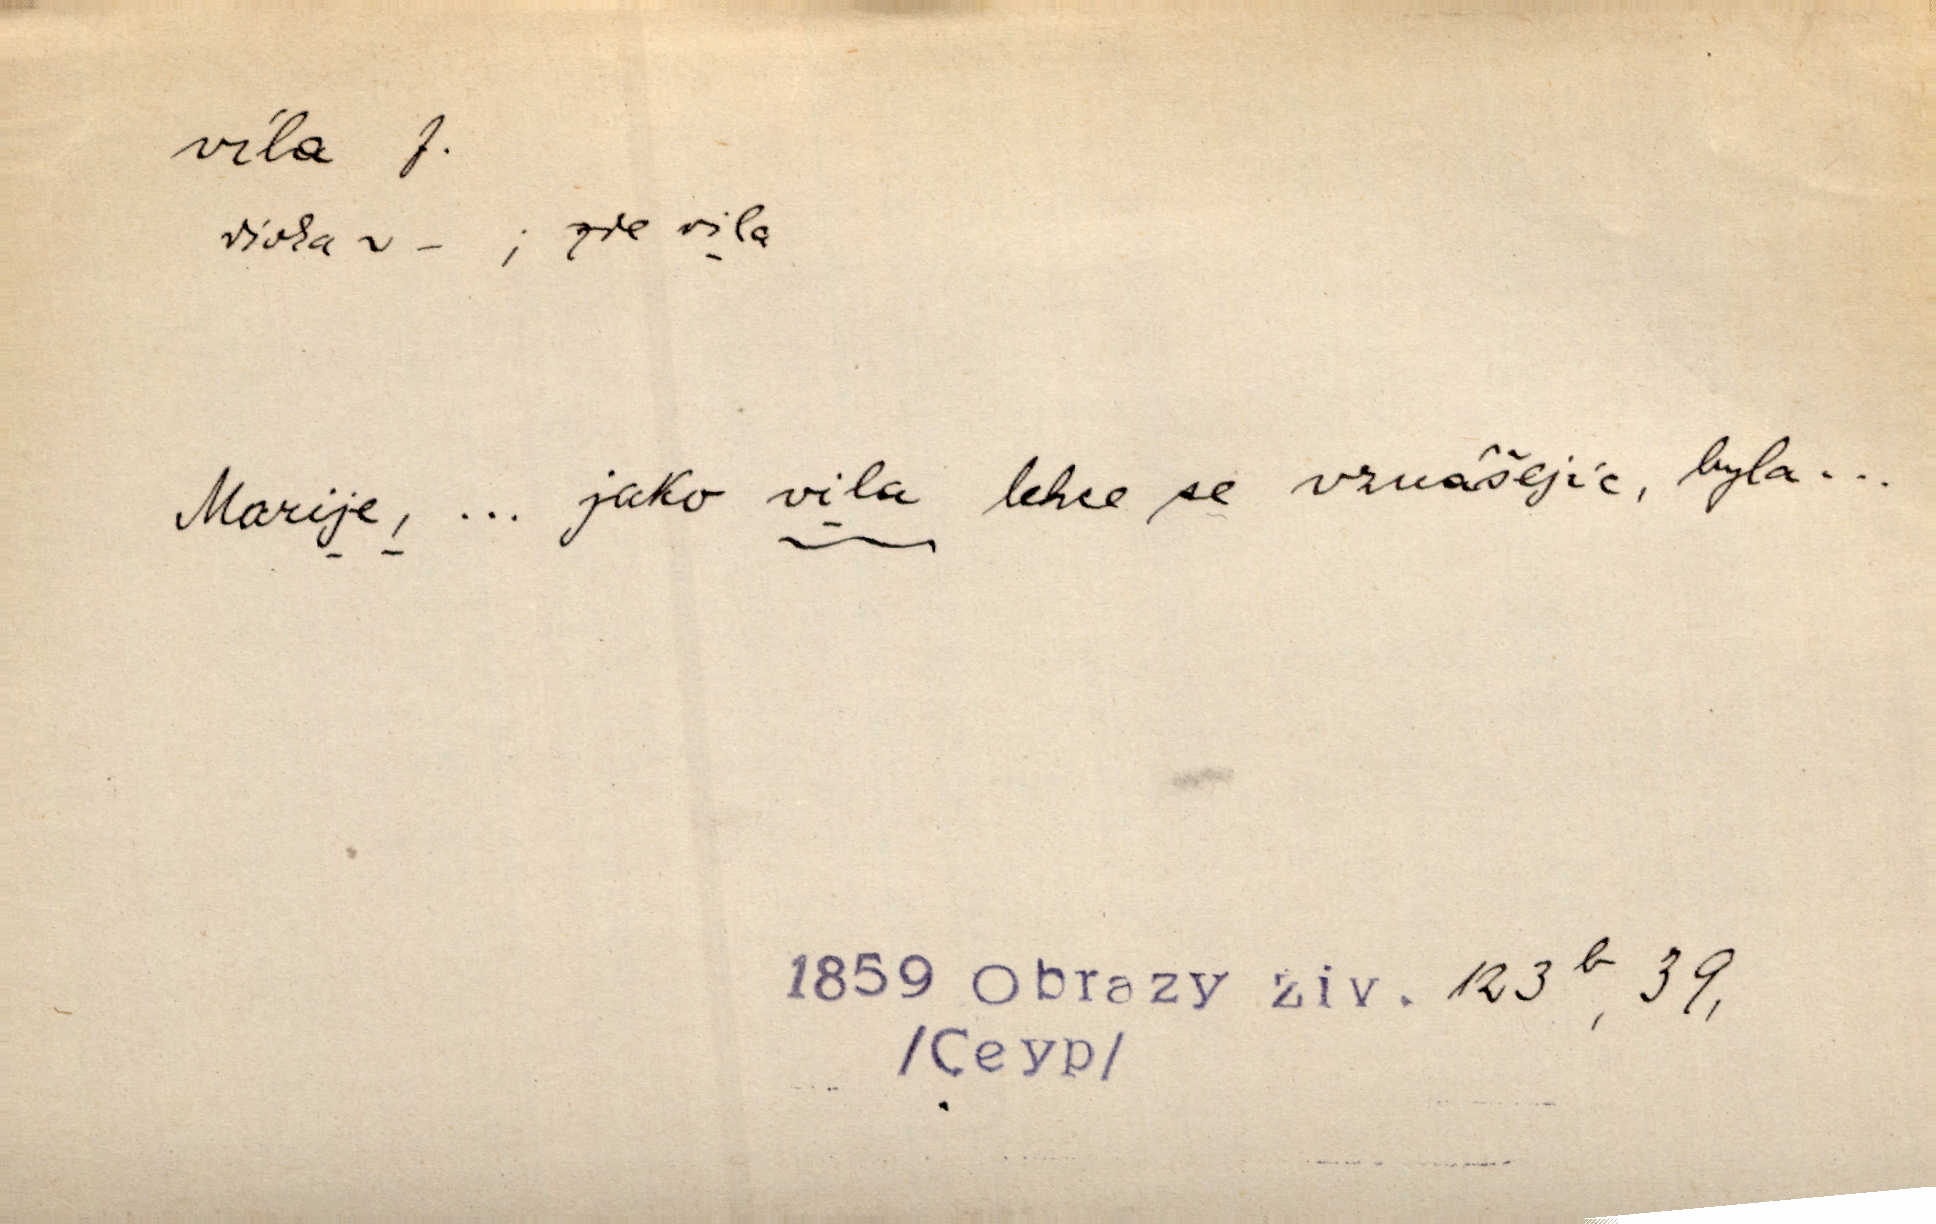 víla f.
dívka v – ; zde vila
Marije, ... jako vila lehce se vznášejíc, byla...
1859 Obrazy živ. 123b, 39,
/Ceyp/